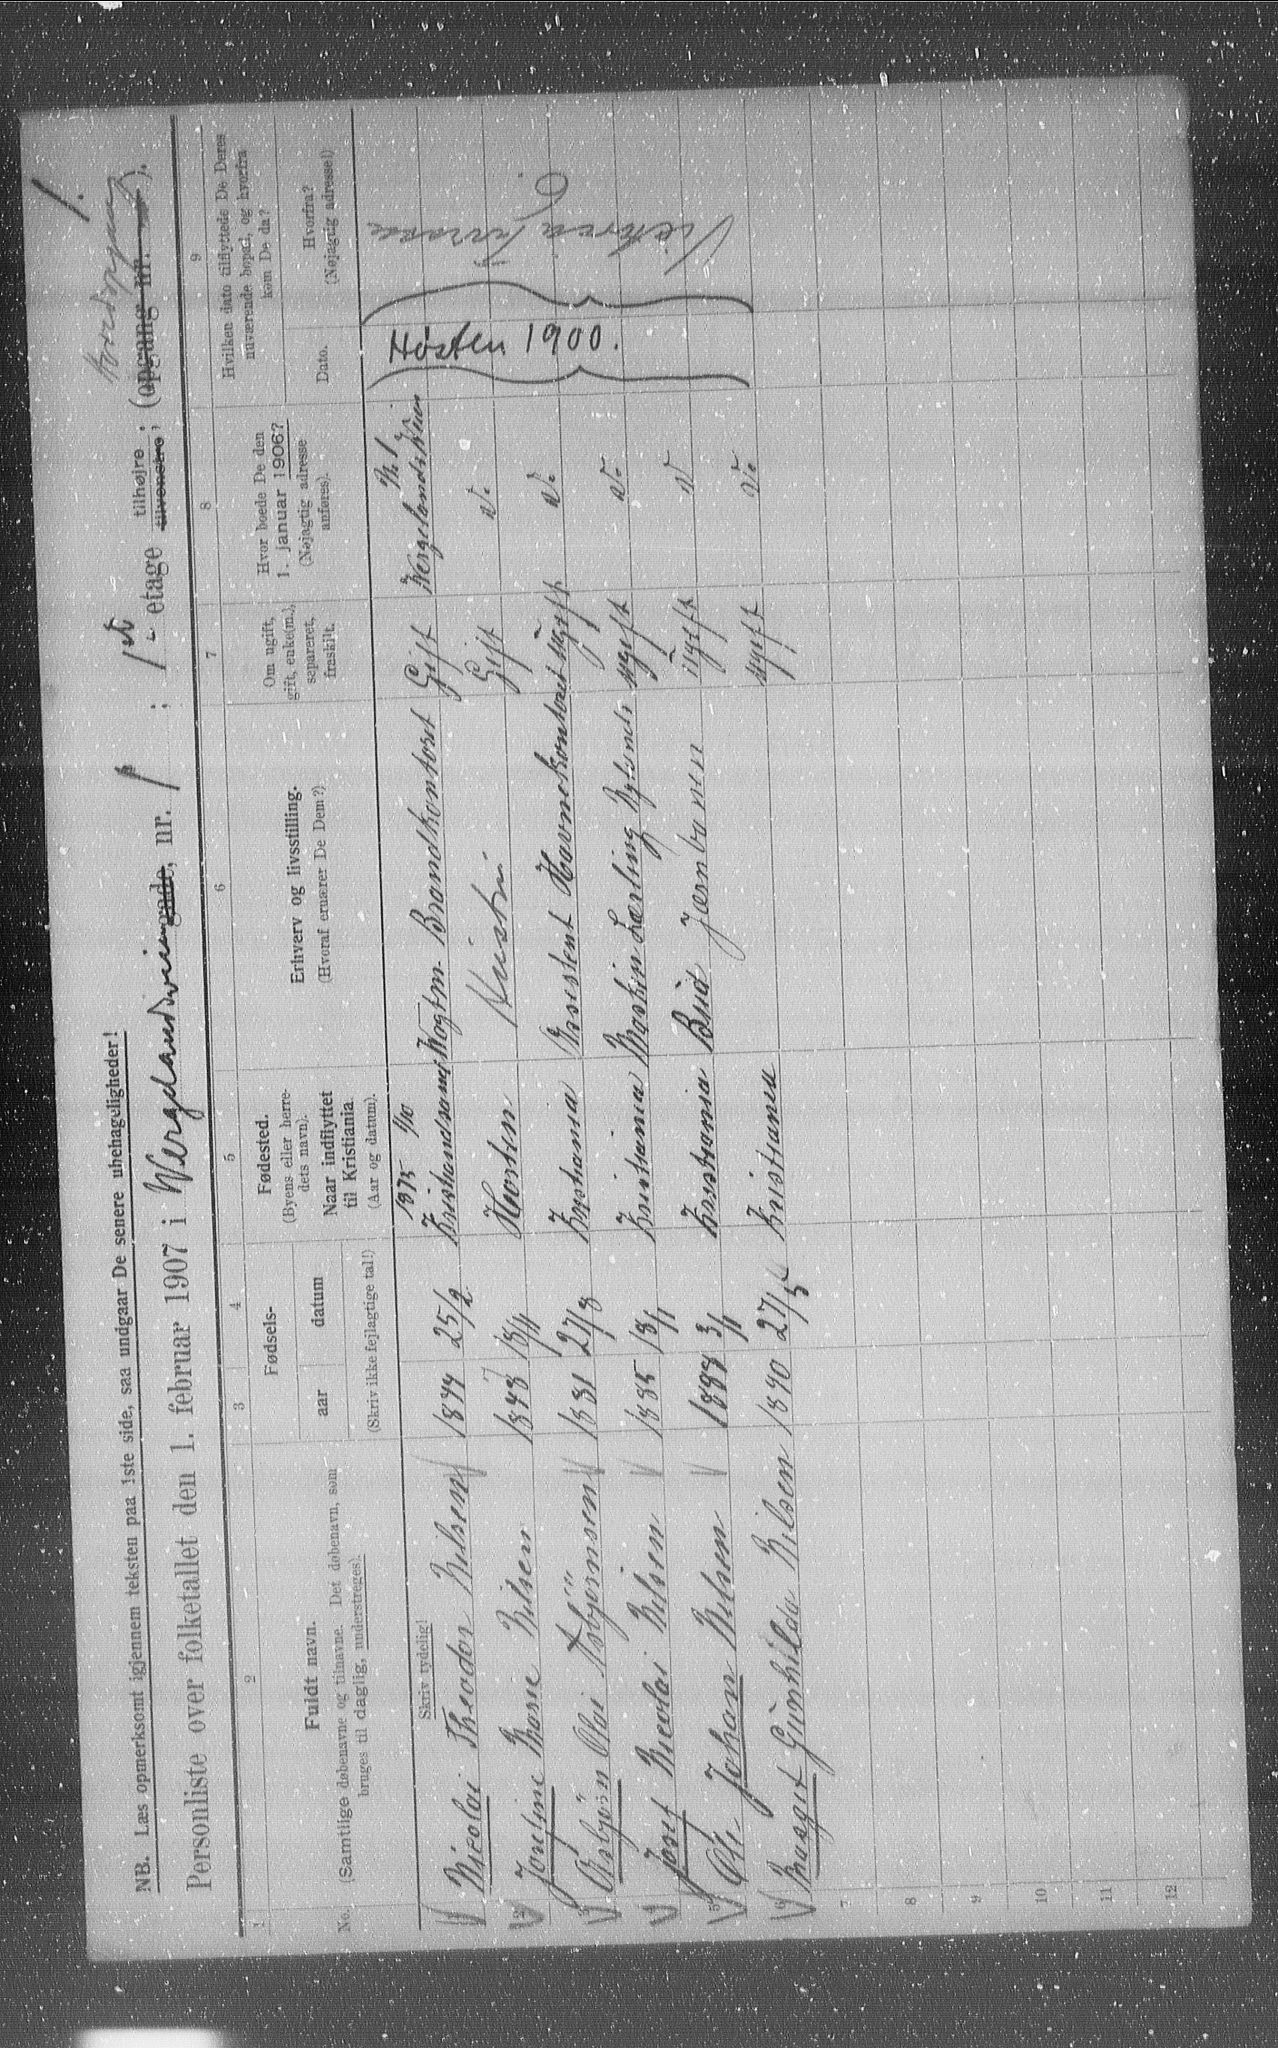 NB. Læs opmerksomt igjennem teksten paa 1ste side, saa undgaar De senere ubehageligheder!
Personliste over folketallet den 1. februar 1907 i Vergelandsveien gade, nr. 1 ; 1st etage tilhøjre; tilvenstre; (opgang nr. ).
1.
1 2 3 4 5 6 7 8 9
No.
Fuldt navn.
(Samtlige døbenavne og tilnavne. Det døbenavn, som
bruges til daglig, understreges).
Fødsels-
aar datum
(Skriv ikke fejlagtige tal!)
Fødested.
(Byens eller herre-
dets navn).
Naar indflyttet
til Kristiania.
(Aar og datum).
Erhverv og livsstilling.
(Hvoraf ernærer De Dem?)
Om ugift,
gift, enke(m.),
separeret,
fraskilt.
Hvor boede De den
1. januar 1906?
(Nøjagtig adresse
anføres).
Hvilken dato tilflyttede De Deres
nuværende bopæl, og hvorfra
kom De da?
Dato.
Hvorfra?
(Nøjagtig adresse!)
Skriv tydelig!
1875 1/10
1 Nicolai Theodor Nilsen 1844 25/2 Kristiandsand Vagtm. Brandkontoret Gift Vergelandsveien № 1
2 Josefine Marie Nilsen 1848 18/11 Horten Hustru Gift d.
3 Asbjørn Olai Asbjørnsen 1881 27/8 Kristiania Assistent Havnekontoret ugift d.
4 Josef Nicolai Nilsen 1885 18/11 Kristiania Maskin Lærling Nylands ugift d.
5 Ole Johan Nilsen 1888 3/11 Kristiania Bud Jærnbanen ugift d
6 Margit Gunhilda Nilsen 1890 27/5 Kristiania ugift d.
Høsten 1900.
Victoria Terrasse 6
7
8
9
10
11
12